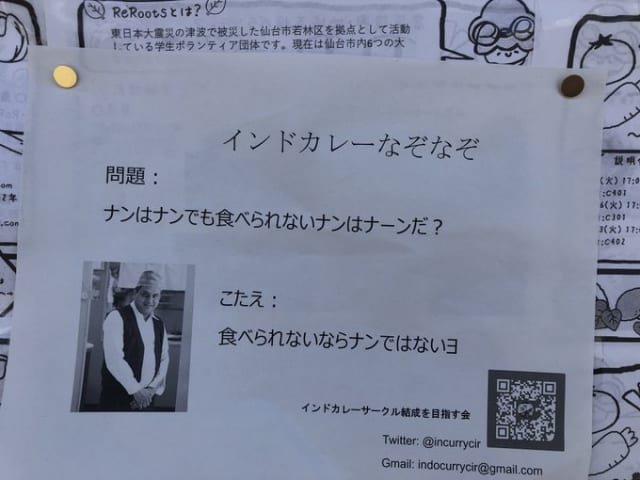 ReRootsとは？
東日本大震災の津波で被災した仙台市若林区を拠点として活動
している学生ボランティア団体です。現在は仙台市内6つの大
インドカレーなぞなぞ
問題：
ナンはナンでも食べられないナンはナーンだ？
こたえ：
食べられないならナンではないヨ
インドカレーサークル結成を目指す会
Twitter: @incurrycir
Gmail: indocurrycir@gmail.com
説明
(火) 17:0
:C401
(火) 17:0
:C301
(火) 17:0
:C402